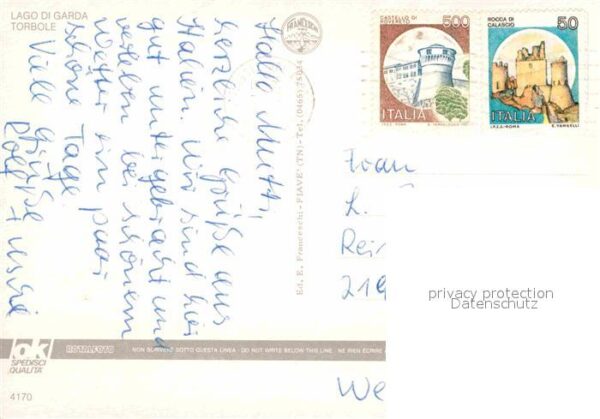 LAGO DI GARDA
TORBOLE
Hallo Mutti,
herzliche Grüße aus
Italien. Wir sind hier
gut untergebracht und
verleben bei schönem
Wetter ein paar
schöne Tage
Viele Grüße
Rolf +
Ed. E. Franceschi - FIAVE' (TN) - Tel. (0465)
500
ITALIA
ROCCA DI
CALASCIO
50
ITALIA
I.P.Z.S. - ROMA
E. VANGELLI
Frau
L.
Rei
219
We
privacy protection
Datenschutz
ok
SPEDISCI
QUALITA'
ROTALFOTO
NON SCRIVERE SOTTO QUESTA LINEA - DO NOT WRITE BELOW THIS LINE - NE RIEN ÉCRIRE
4170